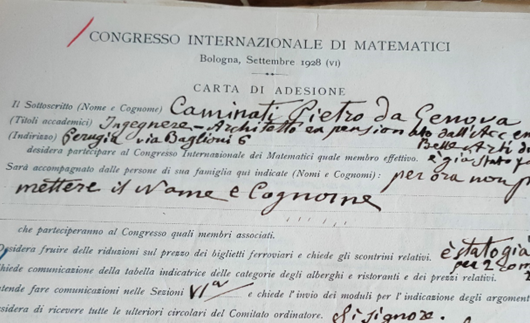 CONGRESSO INTERNAZIONALE DI MATEMATICI
Bologna, Settembre 1928 (VI)
CARTA DI ADESIONE
Il Sottoscritto (Nome e Cognome) Caminati Pietro da Genova
(Titoli accademici) Ingegnere - Architetto ex pensionato dell'Acc
(Indirizzo) Perugia via Baglioni 6 Belle Arti di
desidera partecipare al Congresso Internazionale dei Matematici quale membro effettivo. è già stato
Sarà accompagnato dalle persone di sua famiglia qui indicate (Nomi e Cognomi): per ora non
mettere il Nome e Cognome
che parteciperanno al Congresso quali membri associati.
desidera fruire delle riduzioni sul prezzo dei biglietti ferroviari e chiede gli scontrini relativi. è stato già
chiede comunicazione della tabella indicatrice delle categorie degli alberghi e ristoranti e dei prezzi relativi. per 2
tende fare comunicazioni nelle Sezioni VIa e chiede l'invio dei moduli per l'indicazione degli argomen
sidera di ricevere tutte le ulteriori circolari del Comitato ordinatore. Si signore.